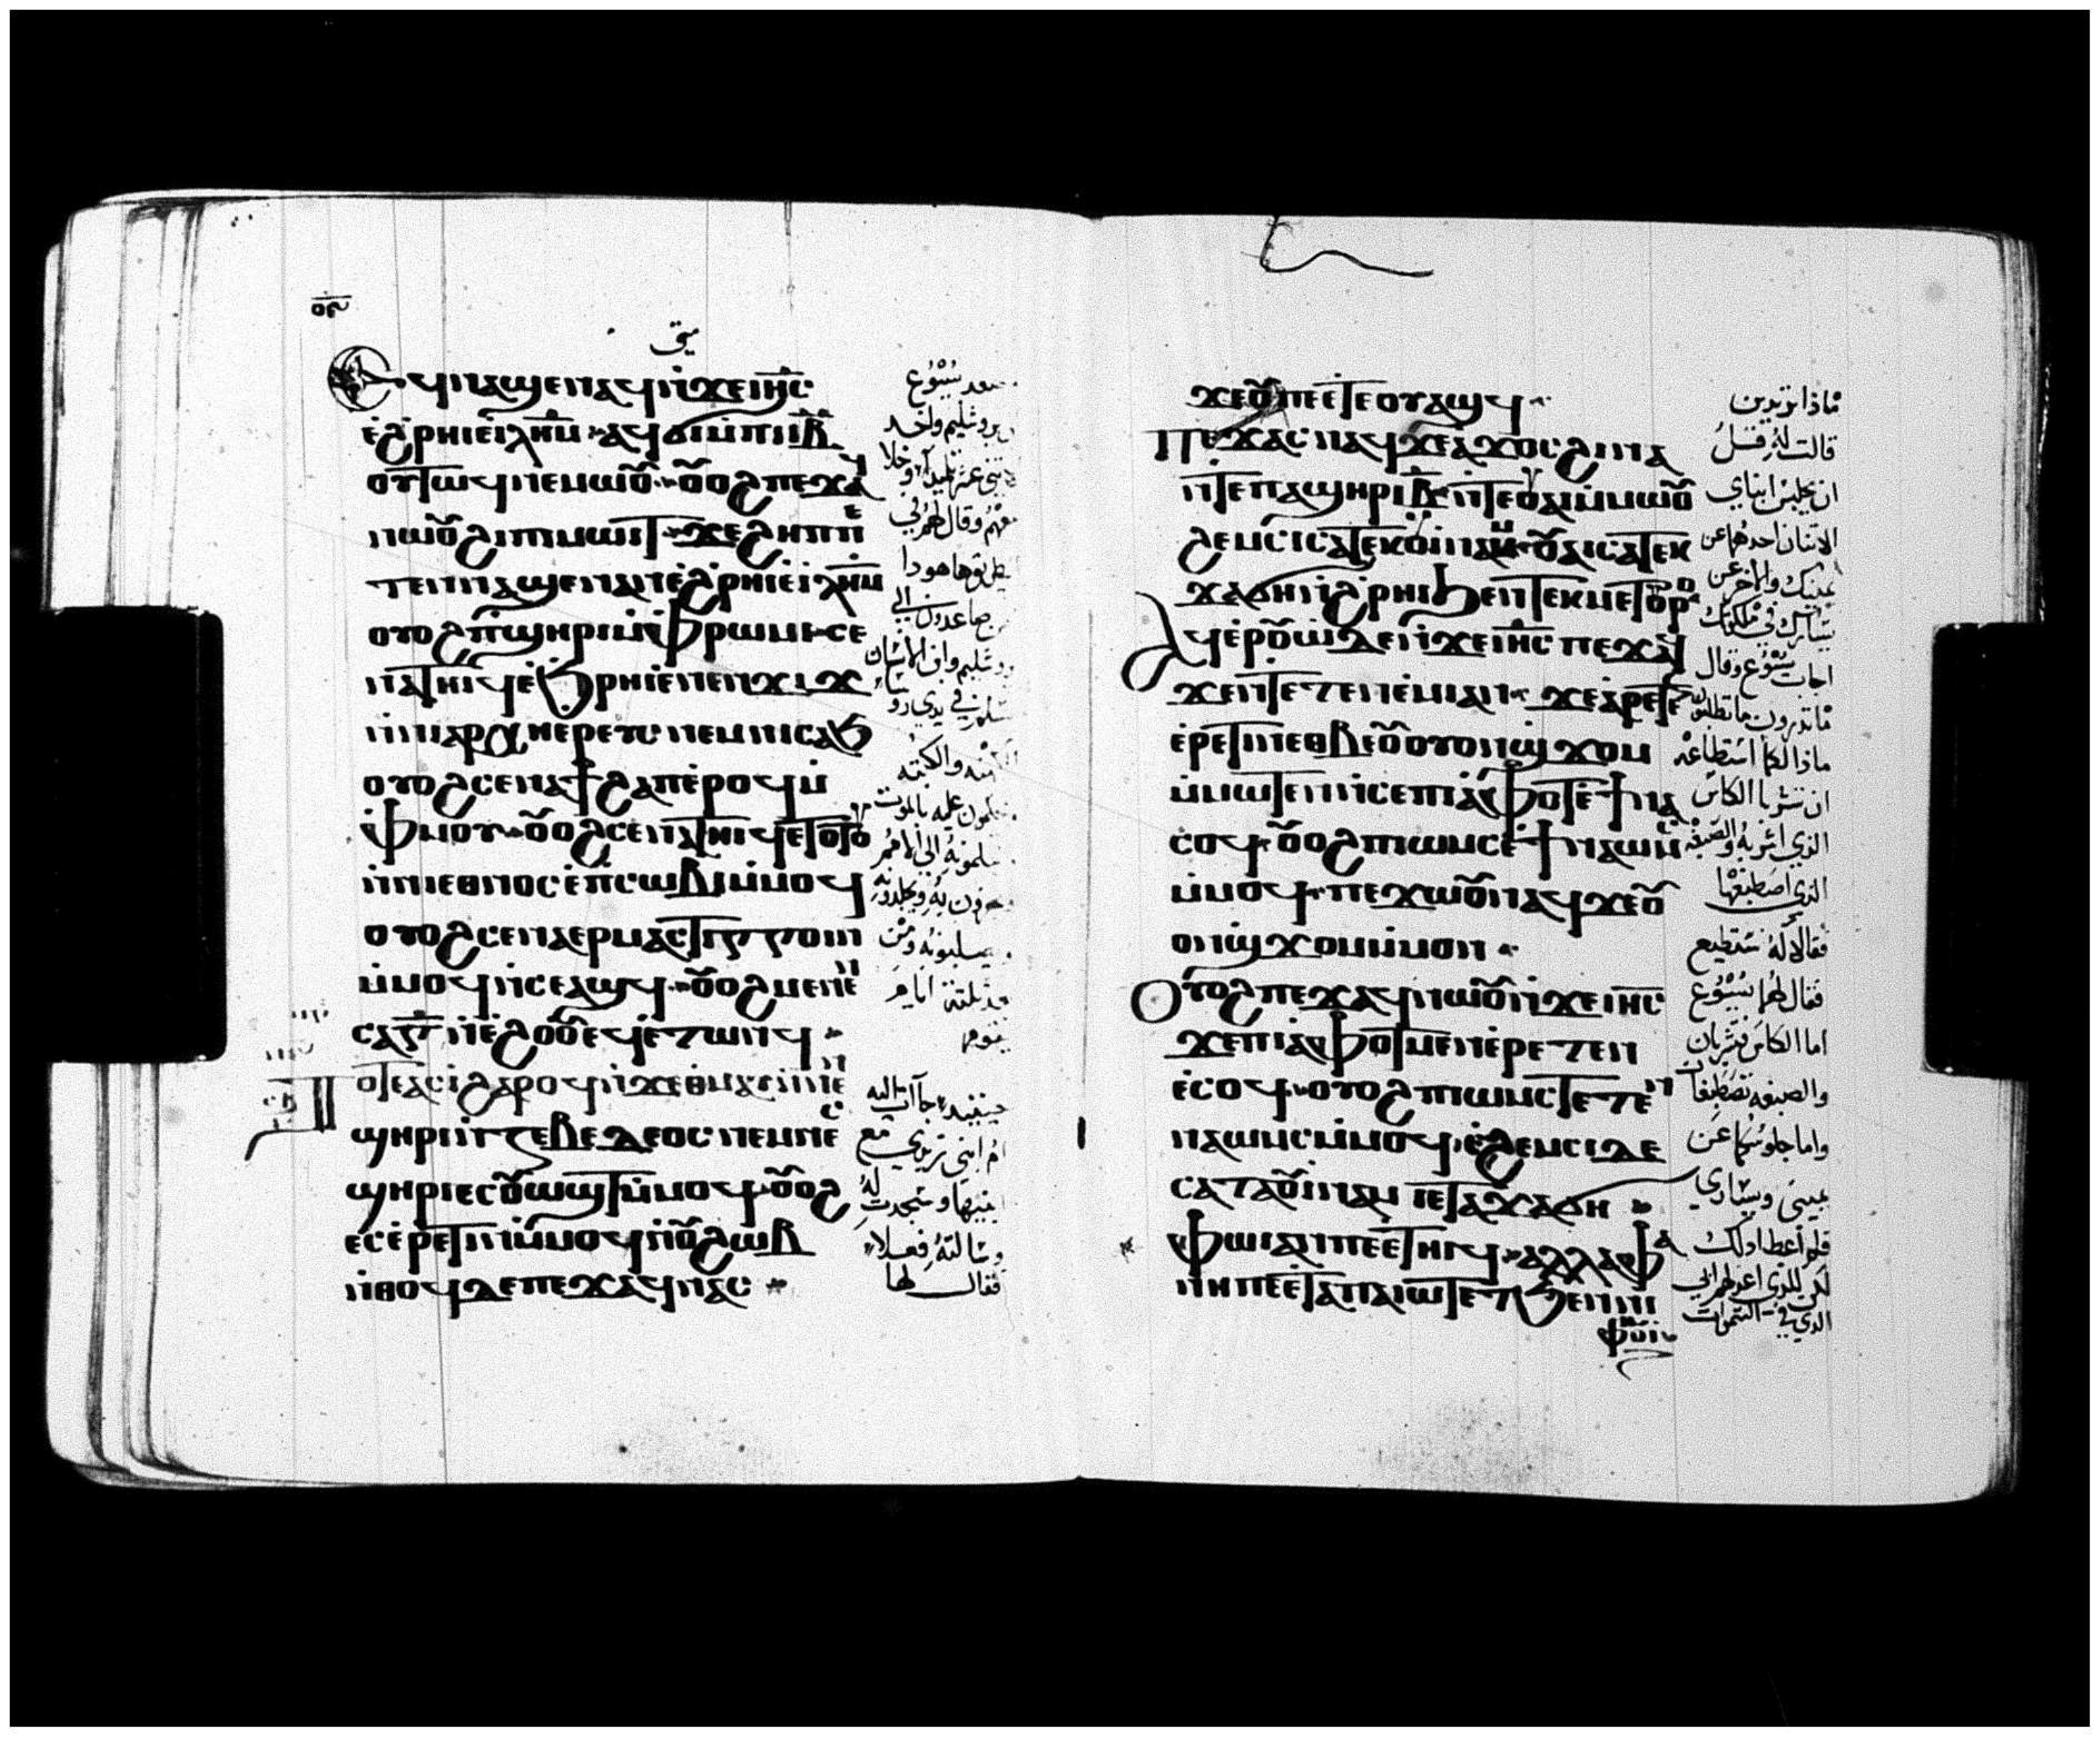 متى
Ⲉϥⲛⲁϣⲉⲛⲁϥ ⲛ̀ϫⲉ ⲓⲏ̅ⲥ̅
ⲉ̀ϩⲣⲏⲓ ⲉ̀ⲓ̅ⲗ̅ⲏ̅ⲙ̅ ⲁϥϭⲓ ⲙ̀ⲡⲓⲓ̅ⲃ̅
ⲟⲩⲧⲱϥ ⲛⲉⲙⲱⲟⲩ ⲟⲩⲟϩ ⲡⲉϫⲁϥ
ⲛⲱⲟⲩ ϩⲓ ⲡⲓⲙⲱⲓⲧ ϫⲉ ϩⲏⲡⲡⲉ
ⲧⲉⲛⲛⲁϣⲉⲛⲁⲛ ⲉ̀ϩⲣⲏⲓ ⲉ̀ⲓ̅ⲗ̅ⲏ̅ⲙ̅
ⲟⲩⲟϩ ⲡ̀ϣⲏⲣⲓ ⲙ̀ⲫⲣⲱⲙⲓ ⲥⲉ
ⲛⲁⲧⲏⲓϥ ⲉ̀ϧⲣⲏⲓ ⲉⲛⲉⲛϫⲓϫ
ⲛ̀ⲛⲓⲁⲣⲭⲏⲉⲣⲉⲩⲥ ⲛⲉⲙ ⲛⲓⲥⲁϧ
ⲟⲩⲟϩ ⲥⲉⲛⲁϯϩⲁⲡ ⲉ̀ⲣⲟϥ ⲙ̀
ⲫⲙⲟⲩ ⲟⲩⲟϩ ⲥⲉⲛⲁⲧⲏⲓϥ ⲉⲧⲟⲧⲟⲩ
ⲛ̀ⲛⲓⲉⲑⲛⲟⲥ ⲉ̀ⲡⲥⲱⲃⲓ ⲙ̀ⲙⲟϥ
ⲟⲩⲟϩ ⲥⲉⲛⲁⲉⲣⲙⲁⲥⲧⲓⲅⲅⲟⲓⲛ
ⲙ̀ⲙⲟϥ ⲛ̀ⲥⲉⲁϣϥ ⲟⲩⲟϩ ⲙⲉⲛⲉⲛ
ⲥⲁ ⲅ̅ ⲛ̀ⲉ̀ϩⲟⲟⲩ ⲉϥⲉⲧⲱⲛϥ
Ⲧⲟⲧⲉ ⲁⲥⲓ̀ ϩⲁⲣⲟϥ ⲛ̀ϫⲉ ⲑⲙⲁⲩ ⲛ̀ⲛⲉⲛ
ϣⲏⲣⲓ ⲛ̀ⲍⲉⲃⲉⲇⲉⲟⲥ ⲛⲉⲙ ⲛⲉⲥ
ϣⲏⲣⲓ ⲉⲥⲟⲩⲱϣⲧ ⲙ̀ⲙⲟϥ ⲟⲩⲟϩ
ⲉⲥⲉ̀ⲣⲉⲧⲓⲛ ⲙ̀ⲙⲟϥ ⲛ̀ⲟⲩϩⲱⲃ
ⲛ̀ⲑⲟϥ ⲇⲉ ⲡⲉϫⲁϥ ⲛⲁⲥ
صعد يسوع
يروشليم واخد
الاثنى عشر تلميدا وخلا
معهم وقال لهم في
الطريق هاهودا
نحن صاعدون الي
يروشليم وابن الانسان
يسلم في يدي روسا
الكهنه والكتبه
ويحكمون عليه بالموت
ويسلمونه الي الامم
ويهزون به ويجلدونه
ويصلبونه ومن
بعد ثلثة ايام
يقوم
حينيد جآات اليه
ام ابني زبدي مع
ابنيها وسجدت له
وسالته فعلا
فقال لها
ϫⲉ ⲟⲩ ⲡⲉⲉⲧⲉⲟⲩⲁϣϥ
Ⲡⲉϫⲁⲥ ⲛⲁϥ ϫⲉ ⲁ̀ϫⲟⲥ ϩⲓⲛⲁ
ⲛ̀ⲧⲉ ⲡⲁϣⲏⲣⲓ ⲃ̅ ⲛ̀ⲧⲉ ⲟⲩⲁⲓ ⲙ̀ⲙⲱⲟⲩ
ϩⲉⲙⲥⲓ ⲥⲁⲧⲉⲕⲟⲩⲓⲛⲁⲙ ⲟⲩⲁⲓ ⲥⲁⲧⲉⲕ
ϫⲁϭⲏ ⲛ̀ϩⲣⲏⲓ ϧⲉⲛ ⲧⲉⲕⲙⲉⲧⲟⲩⲣⲟ
Ⲁϥⲉ̀ⲣⲟⲩⲱ̀ ⲇⲉ ⲛ̀ϫⲉ ⲓⲏ̅ⲥ̅ ⲡⲉϫⲁϥ
ϫⲉ ⲛ̀ⲧⲉⲧⲉⲛⲉ̀ⲙⲓ ⲁⲛ ϫⲉ ⲁ̀ⲣⲉⲧⲉ
ⲉ̀ⲣⲉⲧⲓⲛ ⲉⲑⲃⲉ ⲟⲩ ⲟⲩⲟⲛϣϫⲟⲙ
ⲙ̀ⲙⲱⲧⲉⲛ ⲛ̀ⲥⲉ ⲡⲓⲁ̀ⲫⲟⲧ ⲉ̀ϯⲛⲁ
ⲥⲟϥ ⲟⲩⲟϩ ⲡⲓⲱⲙⲥ ⲉ̀ϯⲛⲁⲱⲙⲥ
ⲙ̀ⲙⲟϥ ⲡⲉϫⲱⲟⲩ ⲛⲁϥ ϫⲉ ⲟⲩ
ⲟⲛϣϫⲟⲙ ⲙ̀ⲙⲟⲛ
Ⲟⲩⲟϩ ⲡⲉϫⲁϥ ⲛⲱⲟⲩ ⲛ̀ϫⲉ ⲓⲏ̅ⲥ̅
ϫⲉ ⲡⲓⲁ̀ⲫⲟⲧ ⲙⲉⲛ ⲉ̀ⲣⲉⲧⲉⲛ
ⲉ̀ⲥⲟϥ ⲟⲩⲟϩ ⲡⲓⲱⲙⲥ ⲧⲉⲧⲉⲛ
ⲛⲁⲱⲙⲥ ⲙ̀ⲙⲟϥ ⲉ̀ϩⲉⲙⲥⲓ ⲇⲉ
ⲥⲁⲧⲁⲟⲩⲓⲛⲁⲙ ⲓⲉ ⲧⲁϫⲁϭⲏ
ⲫⲱⲓ ⲁⲛ ⲡⲉ ⲉ̀ⲧⲏⲓϥ ⲁⲗⲗⲁ ⲫⲁ
ⲛⲏ ⲡⲉ ⲉ̀ⲧⲁ ⲡⲁⲓⲱⲧ ⲉⲧϧⲉⲛ ⲛⲓ
ⲫⲏⲟⲩⲓ
ماذا تريدين
قالت له قل
ان يجلس ابناي
الاثنان احدهما عن
يمينك والاخر عن
يسارك في ملكوتك
اجاب يسوع وقال
ماتدرون ما تطلبون
ماذا لكما استطاعه
ان تشربا الكاس
الذي اشربه والصبغه
الذي اصطبغها
فقالا له نستطيع
فقال لهما يسوع
اما الكاس فتشربان
والصبغه تصطبغان
واما جلوسكما عن
يميني ويساري
فلم اعطا دلك
لكن للذي اعد لهم ابي
الدي في السموات